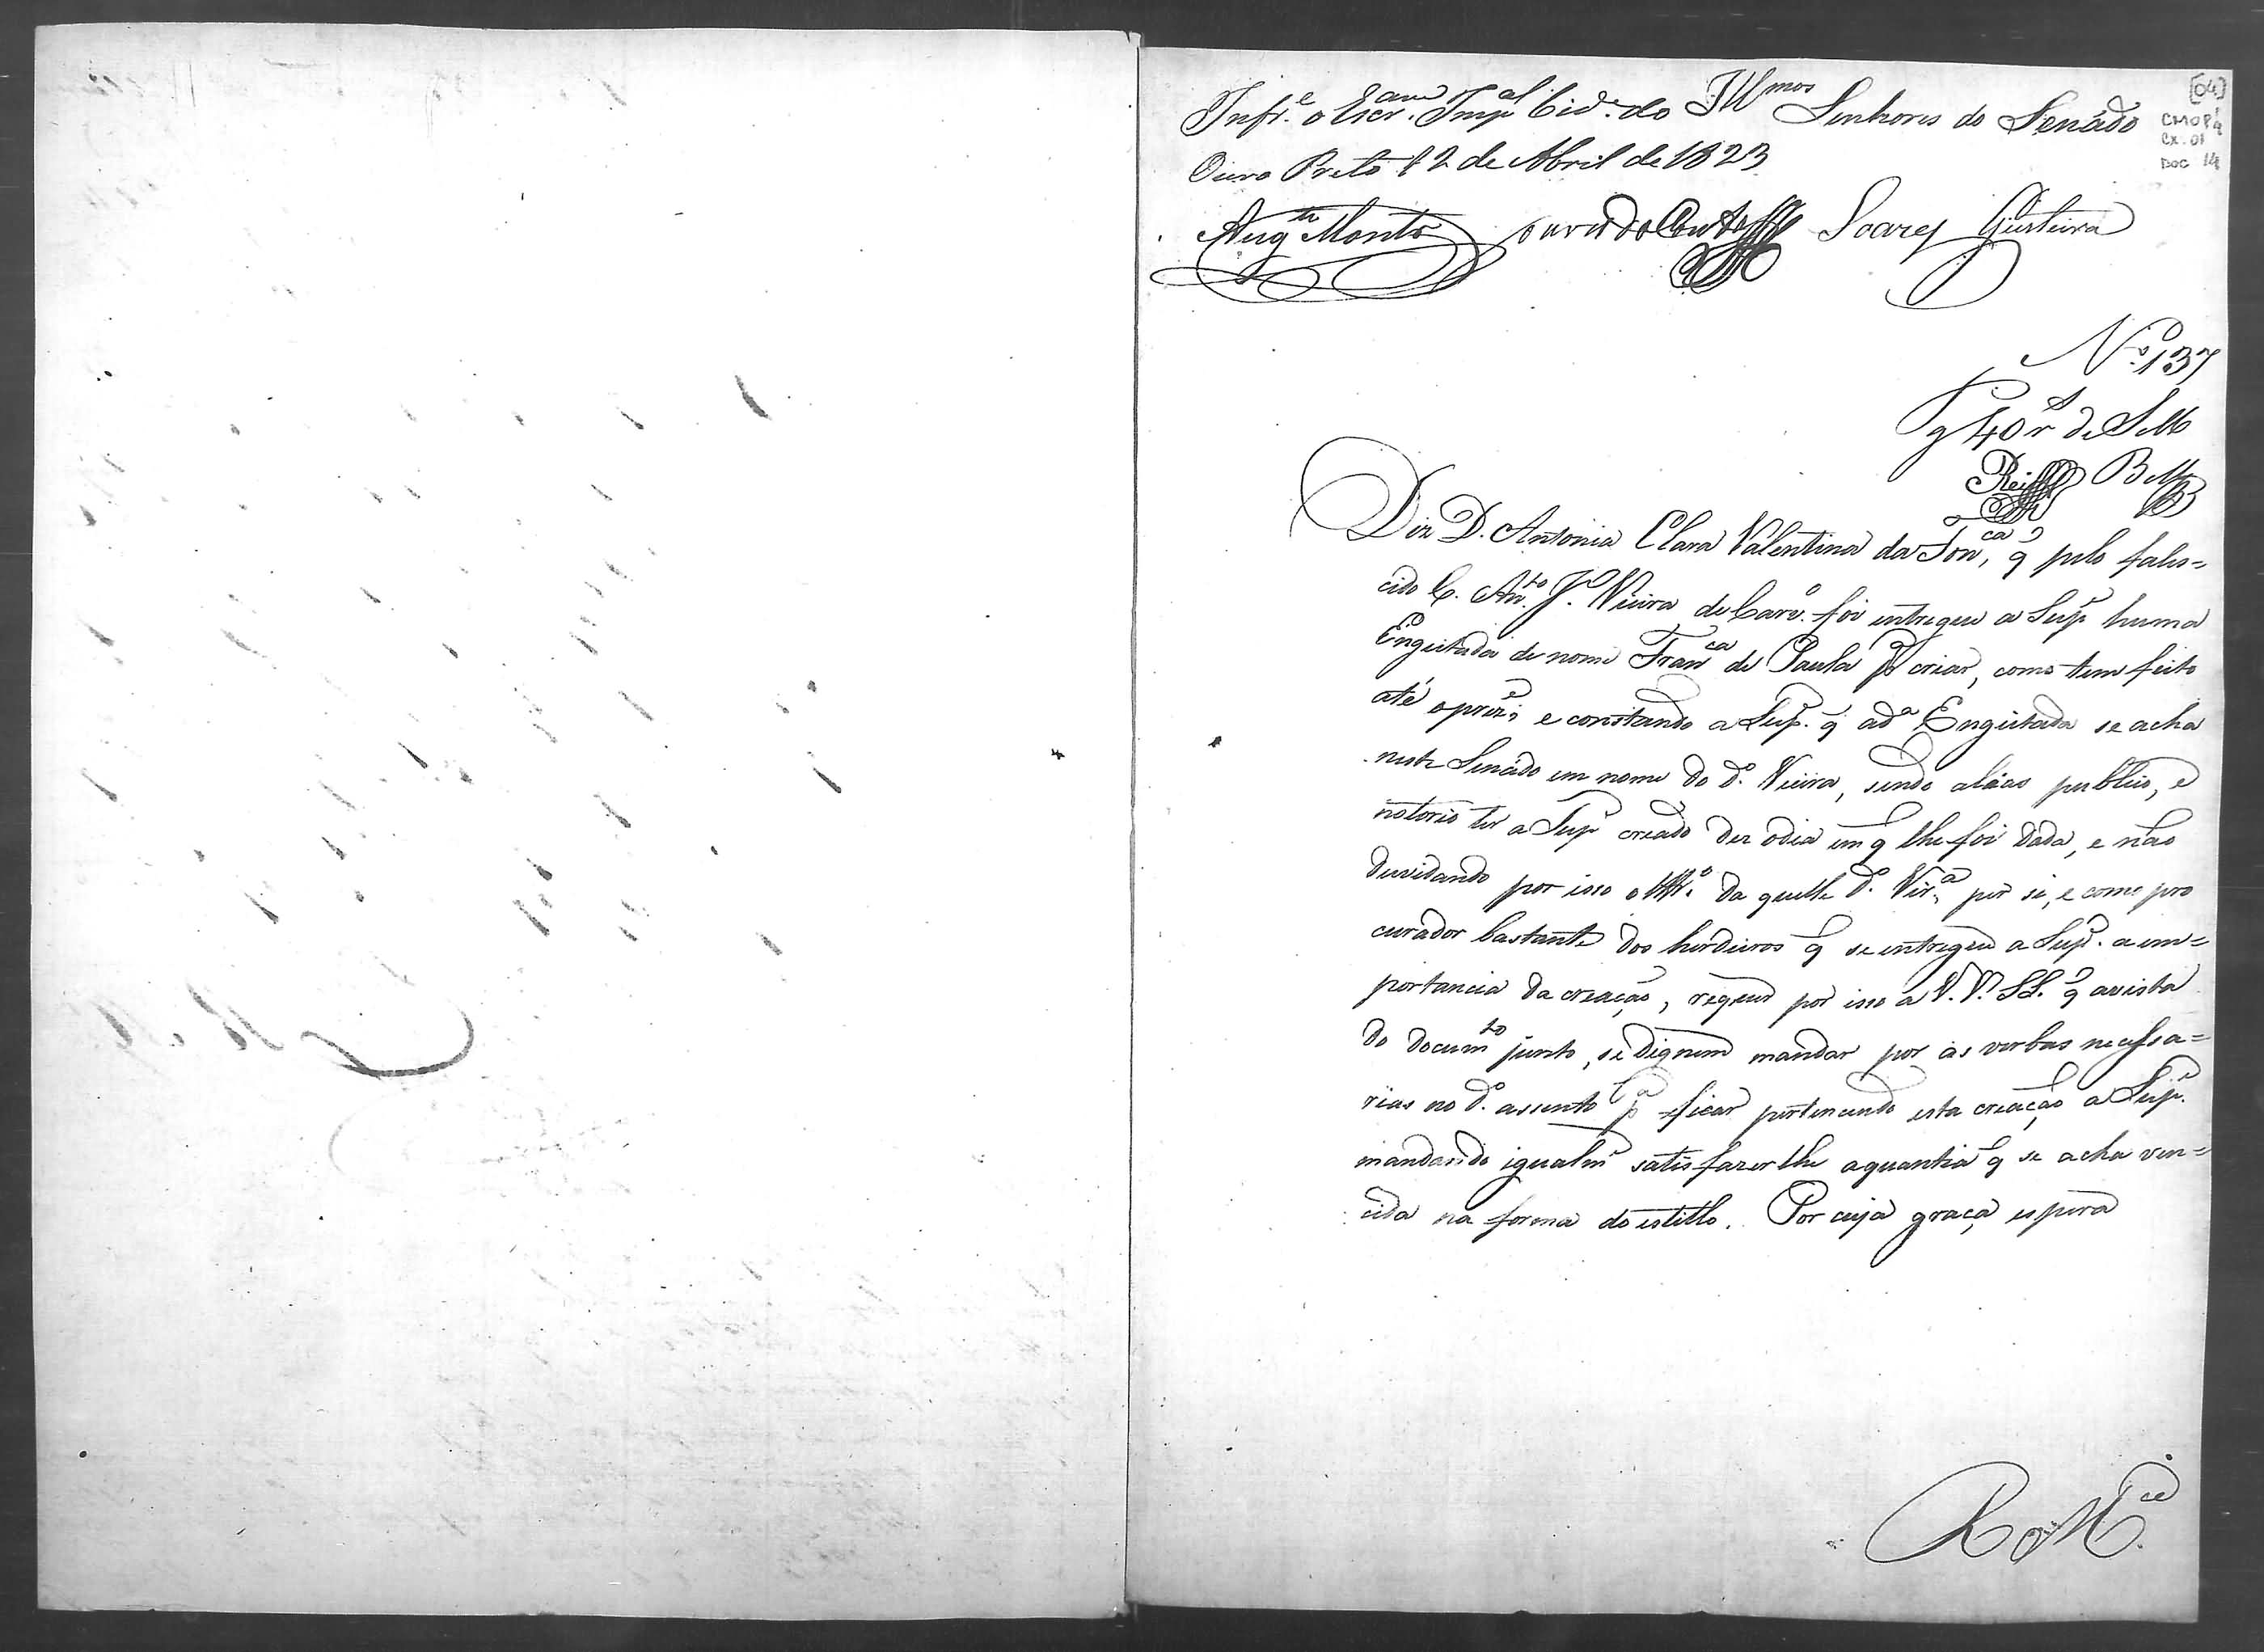 [04]
CMOP
Cx. 01
DOC 14
Infr.e o Escr.am Imp.al Cid.e do Illmos Senhores do Senádo
Ouro Preto 12 de Abril de 1823
Aug.to Monto Soares
N.o 137
Pg 40 rs de Sello
Reis Bello
Diz D. Antonia Clara Valentina da Fon.ca, q pelo fales=
cido C. An.to J.e Vieira de Carv.o foi entregue a Sup.e huma
Engeitada de nome Fran.ca de Paula p.a criar, como tem feito
até o prez.e; e constando a Sup.e q a d.a Engeitada se acha
neste Senádo em nome do d.o Vieira, sendo aliáas publico, e
notorio ter a Sup.e creado dez o dia em q lhe foi dada, e não
duvidando por isso o da quelle d.o Vier.a, por si, e como pro
curador bastante dos herdeiros q se entregue a Sup.e a im=
portancia da creação, requer por isso a V. V. SS. q avista
do docum.to junto, se dignem mandar por as verbas necessa=
rias no d.o assento p.a ficar pertencendo esta creação a Sup.e
mandando igualm.e satisfazer lhe a quantia q se acha ven=
cida na forma do estillo. Por cuja graça espera
R M.ce